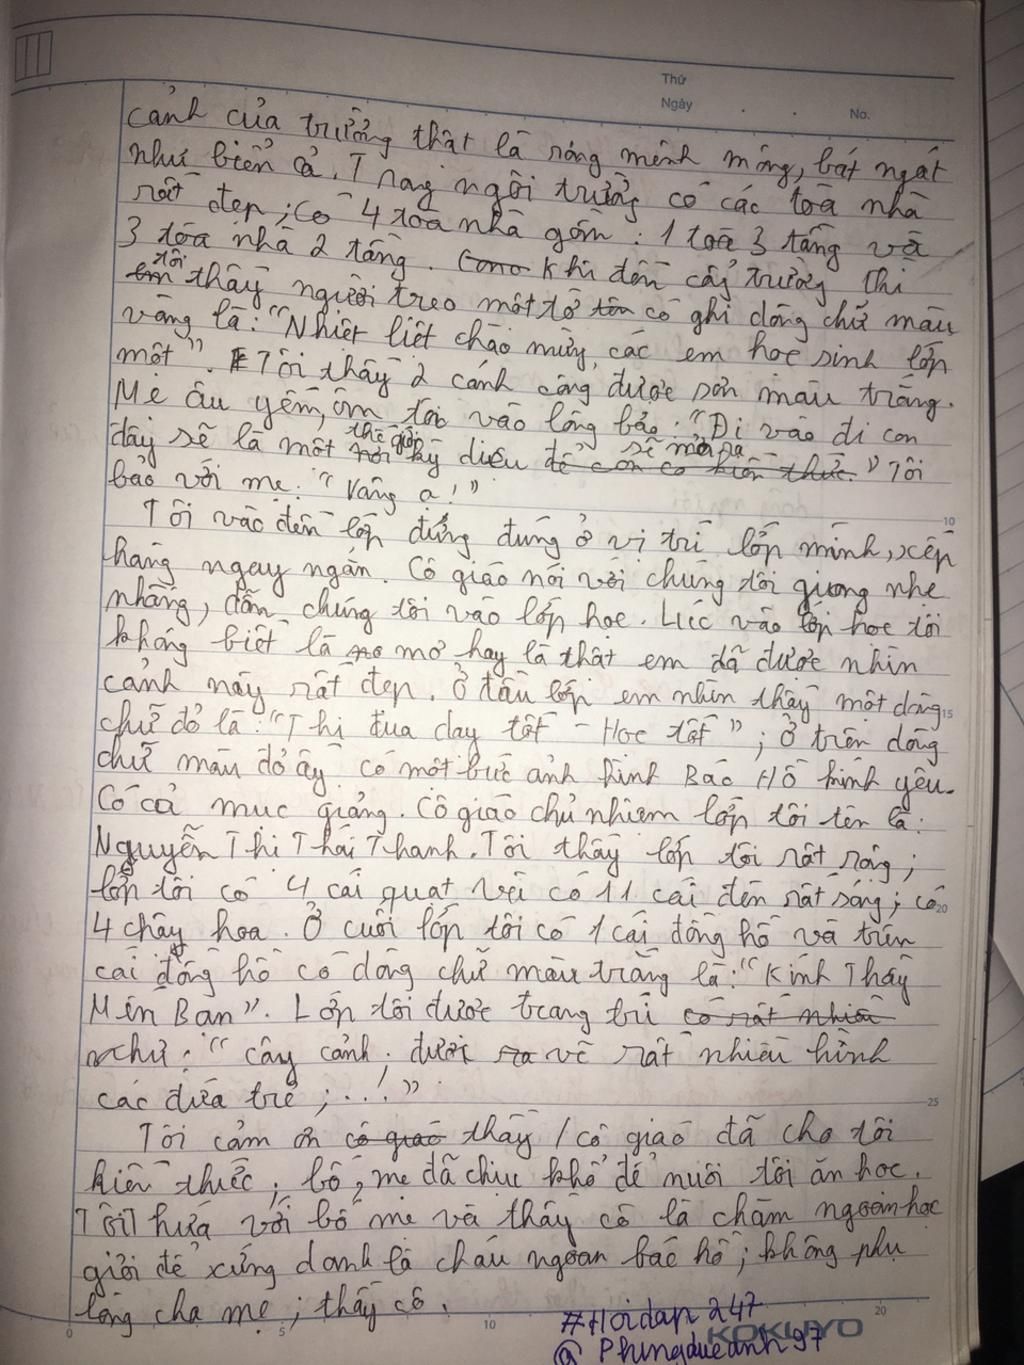 Thứ
Ngày . . No.
cảnh của trường thật là rộng mênh mông, bát ngát
như biển cả. Trong ngôi trường có các toà nhà
rất đẹp; có 4 toà nhà gồm: 1 toà 3 tầng và
3 tòa nhà 2 tầng. Khi đến cổng trường thì
tôi thấy người treo một tờ có ghi dòng chữ màu
vàng là: "Nhiệt liệt chào mừng các em học sinh lớp
một". Tôi thấy 2 cánh cổng được sơn màu trắng.
Mẹ âu yếm, ôm tôi vào lòng bảo: "Đi vào đi con
đây sẽ là một thế giới kỳ diệu sẽ mở ra" Tôi
bảo với mẹ: "Vâng ạ!"
Tôi vào đến lớp đứng đúng ở vị trí lớp mình, xếp
hàng ngay ngắn. Cô giáo nói với chúng tôi giọng nhẹ
nhàng, dẫn chúng tôi vào lớp học. Lúc vào lớp học tôi
không biết là mơ hay là thật em đã được nhìn
cảnh này rất đẹp. Ở đầu lớp em nhìn thấy một dòng
chữ đỏ là: "Thi đua dạy tốt - Học tốt"; ở trên dòng
chữ màu đỏ ấy có một bức ảnh hình Bác Hồ kính yêu.
Có cả mục giảng. Cô giáo chủ nhiệm lớp tôi tên là:
Nguyễn Thị Thái Thanh. Tôi thấy lớp tôi rất rộng;
lớp tôi có 4 cái quạt với có 11 cái đèn rất sáng; có
4 chậy hoa. Ở cuối lớp tôi có 1 cái đồng hồ và trên
cái đồng hồ có dòng chữ màu trắng là: "Kính Thầy
Mến Bạn". Lớp tôi được trang trí có rất nhiều
như: "cây cảnh; được vẽ rất nhiều hình
các đứa trẻ; ...!"
Tôi cảm ơn cô giáo thầy / cô giáo đã cho tôi
kiến thức; bố, mẹ đã chịu khổ để nuôi tôi ăn học.
Tôi hứa với bố mẹ và thầy cô là chăm ngoan học
giỏi để xứng danh là cháu ngoan bác hồ; không phụ
lòng cha mẹ; thầy cô.
#Hoidap247
@Phungducanh97
KOKUYO
10
15
20
25
0 5 10 20